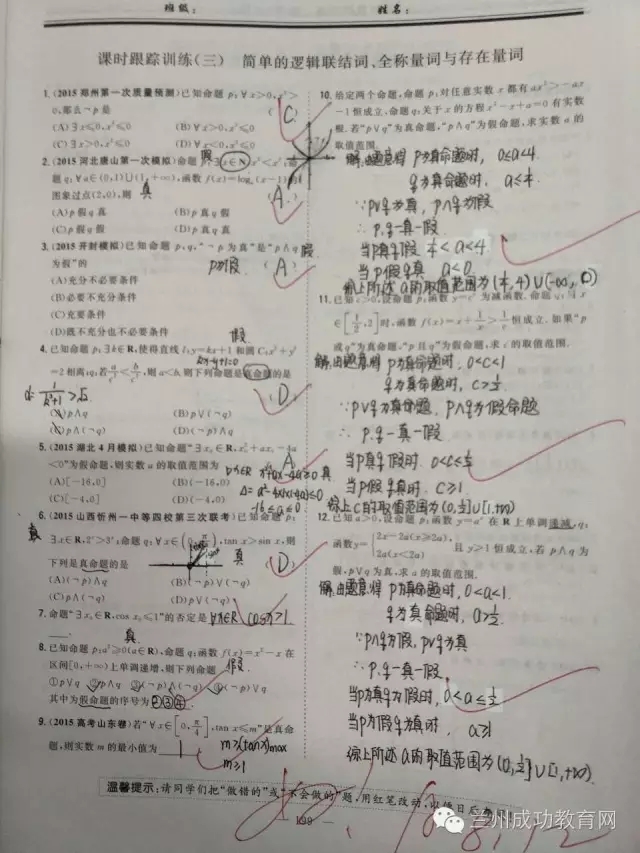 班级： 姓名：
课时跟踪训练(三) 简单的逻辑联结词、全称量词与存在量词
1. (2015 郑州第一次质量预测)已知命题 p: ∀x>0, x³>
0,那么¬p是 C
(A)∃x≤0, x³≤0 (B)∀x>0, x³≤0
(C)∃x>0, x³≤0 (D)∀x<0, x³≤0
2. (2015 河北唐山第一次模拟)命题 假
题 q: ∀a∈(0,1)∪(1,+∞), 函数 f(x)=logₐ(x-1)的
图象过点(2,0), 则 真 (A)
(A)p假q真 (B)p真q假
(C)p假q假 (D)p真q真
3. (2015 开封模拟)已知命题 p,q,“¬p为真”是“p∧q 假
为假”的 p为假 (A)
(A)充分不必要条件
(B)必要不充分条件
(C)充要条件
(D)既不充分也不必要条件
假
4. 已知命题 p: ∃k∈R, 使得直线 l: y=kx+1 和圆 C: x²+y²
kx-y+1=0
=2相离; q: 若 a/c²<b/c², 则 a<b. 则下列命题是真命题的是
(D)
(A)p∧q (B)p∨(¬q)
(C)p∧(¬q) (D)(¬p)∧q
5. (2015 湖北4月模拟)已知命题“∃x₀∈R, x₀²+ax₀-4a
<0”为假命题,则实数 a 的取值范围为 A
∀x∈R x²+ax-4a≥0 真
(A)[-16,0] (B)(-16,0)
-16≤a≤0
(C)[-4,0] (D)(-4,0)
6. (2015 山西忻州一中等四校第三次联考)已知命题 p:
真
∃x∈R, 2ˣ>3ˣ; 命题 q: ∀x∈(0, π/2), tan x>sin x, 则
真
下列是真命题的是 (D)
(A)(¬p)∧q (B)(¬p)∨(¬q)
(C)p∧(¬q) (D)p∨(¬q)
7. 命题“∃x₀∈R, cos x₀≤1”的否定是 ∀x∈R cosx>1
真
8. 已知命题 p: a²≥0(a∈R), 命题 q: 函数 f(x)=x²-x 在
区间[0,+∞)上单调递增,则下列命题 假
①p∨q ②p∧q ③(¬p)∧(¬q) ④(¬p)∨q
其中为假命题的序号为 ②③④
9. (2015 高考山东卷)若“∀x∈[0, π/4], tan x≤m”是真命
题,则实数 m 的最小值为 1 m≥(tanx)max
m≥1
10. 给定两个命题,命题 p: 对任意实数 x 都有 ax²>-ax
-1恒成立,命题 q: 关于 x 的方程 x²-x+a=0 有实数
根. 若“p∨q”为真命题,“p∧q”为假命题,求实数 a 的
取值范围.
解:由题意得 p为真命题时, 0≤a<4
q为真命题时, a≤1/4.
∵p∨q为真, p∧q为假
∴p.q一真一假.
当p真q假 1/4<a<4
当p假q真 a<0.
综上所述 a的取值范围为(1/4,4)∪(-∞,0)
11. 已知c>0,设命题 p: 函数 y=cˣ 为减函数. 命题 q: 当 x
∈[1/2, 2]时, 函数 f(x)=x+1/x>1/c 恒成立. 如果“p
或q”为真命题,“p且q”为假命题,求 c 的取值范围.
解:由题意得 p为真命题时, 0<c<1
q为真命题时, c>1/2.
∵p∨q为真命题, p∧q为假命题
∴p.q一真一假
当p真q假时. 0<c≤1/2
当p假q真时. c≥1.
综上c的取值范围为(0,1/2]∪[1,+∞)
12. 已知a>0,设命题 p: 函数 y=aˣ 在 R 上单调递减, q:
函数 y={2x-2a(x≥2a), 2a(x<2a) 且 y>1 恒成立, 若 p∧q 为
假, p∨q 为真, 求 a 的取值范围.
解:由题意得 p为真命题时, 0<a<1.
q为真命题时, a>1/2.
∵p∧q为假, p∨q为真
∴p.q一真一假.
当p为真q为假时, 0<a≤1/2
当p为假q为真时, a≥1
综上所述 a的取值范围为(0,1/2]∪[1,+∞).
温馨提示:请同学们把“做错的”或“不会做的”题,用红笔改动,以待日后
199
兰州成功教育网